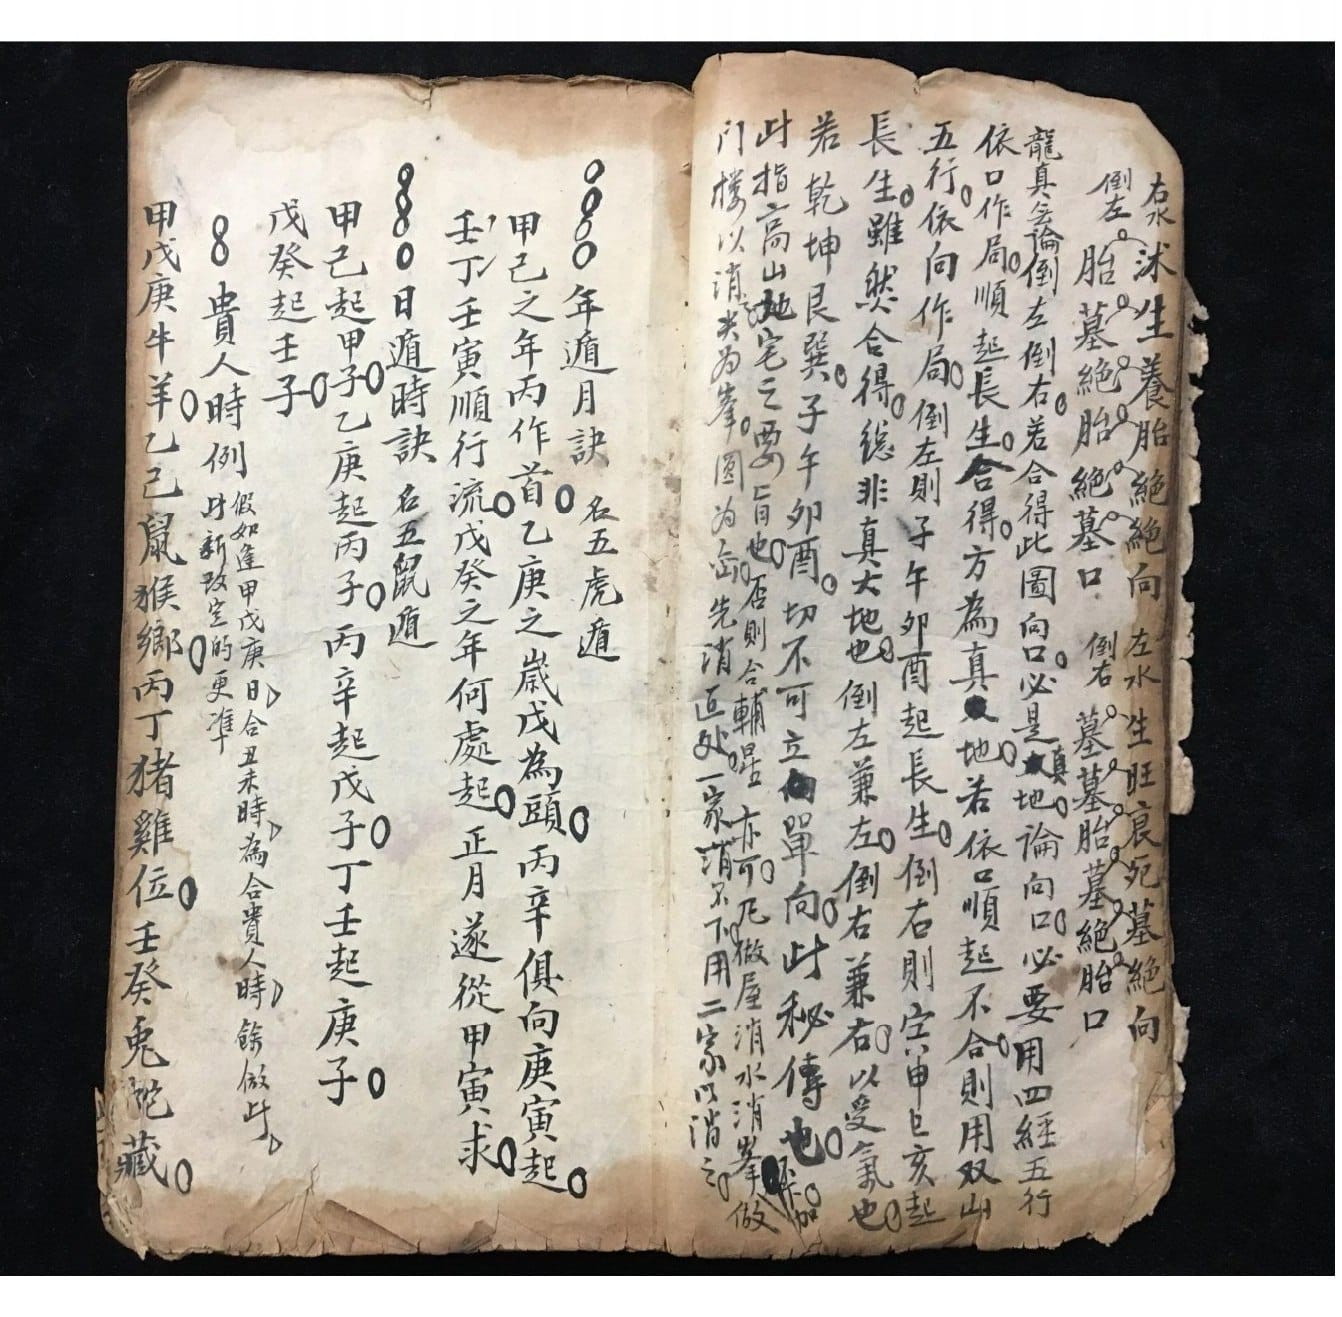 右水
倒左
沐生養胎絕絕向
胎墓絕胎絕墓口
左水
倒右
生旺衰死墓絕向
墓墓胎墓絕胎口
龍真穴論倒左倒右若合得此圖向口必是真地論向口必要用四經五行
依口作局順起長生合得方為真地若依口順起不合則用双山
五行依向作局倒左則子午卯酉起長生倒右則寅申巳亥起
長生雖然合得總非真大地也倒左兼左倒右兼右以受氣也
若乾坤艮巽子午卯酉切不可立單向此秘傳也
此指高山地宅之要旨也否則合輔星亦可凡做屋消水消峯做
门楼以消尖为峯圆为峦先消近处一家消不下用二家以消之
年遁月訣 名五虎遁
甲己之年丙作首乙庚之歲戊為頭丙辛俱向庚寅起
壬丁壬寅順行流戊癸之年何處起正月遂從甲寅求
日遁時訣 名五鼠遁
甲己起甲子乙庚起丙子丙辛起戊子丁壬起庚子
戊癸起壬子
貴人時例
假如逢甲戊庚日合丑未時為合貴人時餘做此
此新改定的更準
甲戊庚牛羊乙己鼠猴鄉丙丁猪雞位壬癸兎蛇藏